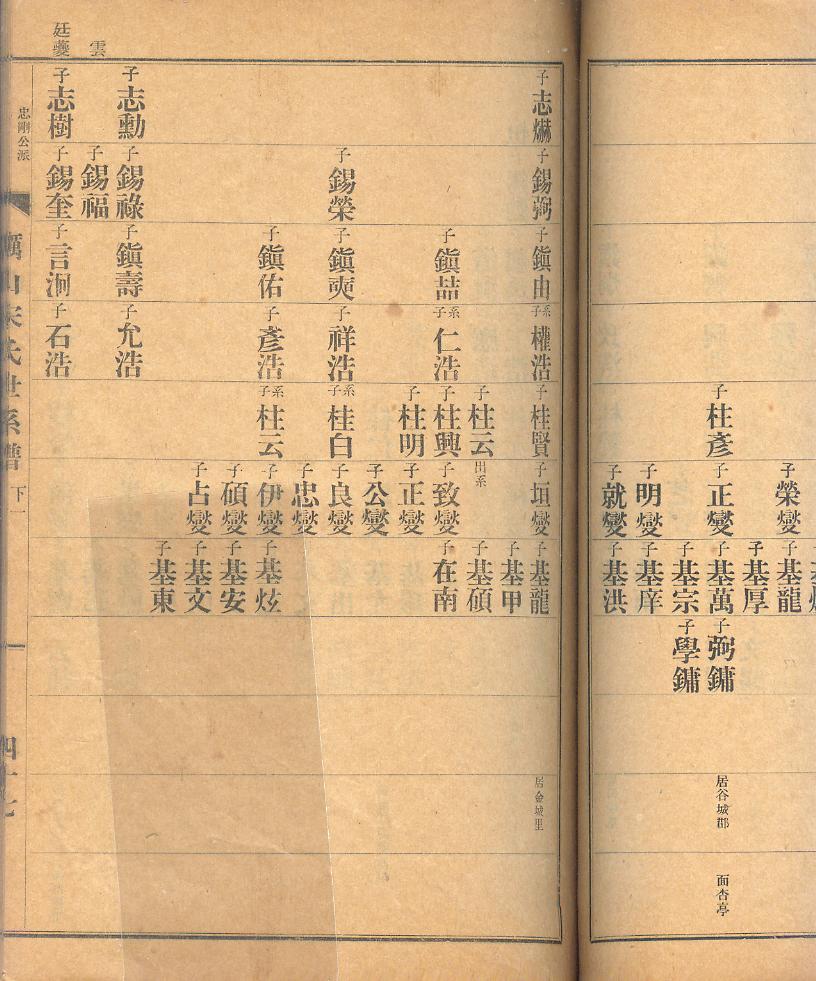 子榮燮
子基龍
子基厚
子柱彥
子正燮
子基萬
子弼鏞
居谷城郡
面杏亭
子基宗
子學鏞
子明燮
子基庠
子就燮
子基洪
子志爀
子錫弼
子鎭由
系子權浩
子桂賢
子垣燮
子基龍
居金城里
子基甲
子柱云
出系
子基碩
子鎭喆
系子仁浩
子柱興
子致燮
子在南
子柱明
子正燮
子公燮
子錫榮
子鎭奭
子祥浩
系子桂白
子良燮
子忠燮
子鎭佑
子彥浩
系子柱云
子伊燮
子基炫
子碩燮
子基安
子占燮
子基文
子基東
子志勳
子錫祿
子鎭壽
子允浩
雲
子錫福
廷夔
子志樹
子錫奎
子言泂
子石浩
忠剛公派
礪山宋氏世系譜
下一
四十七